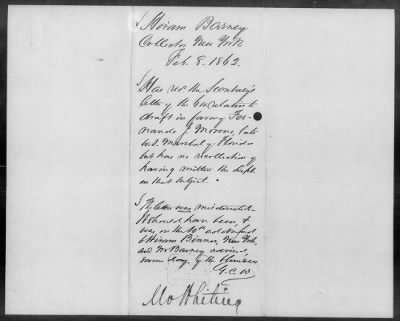 Hiram Barney
Collector New York
Feb. 8. 1862.
Has rec'd the Secretary's
letter of the 6th relative to
draft in favor of Fer-
nando J. Moreno, late
U.S. Marshal of Florida
but has no recollection of
having written the Dept.
on that subject.
The letter was misdirected.
It should have been, &
was, on the 10th addressed
to Hiram Bonner, New York,
and Mr Barney advised
same day, of the
G.C.W.
Mo Whiting